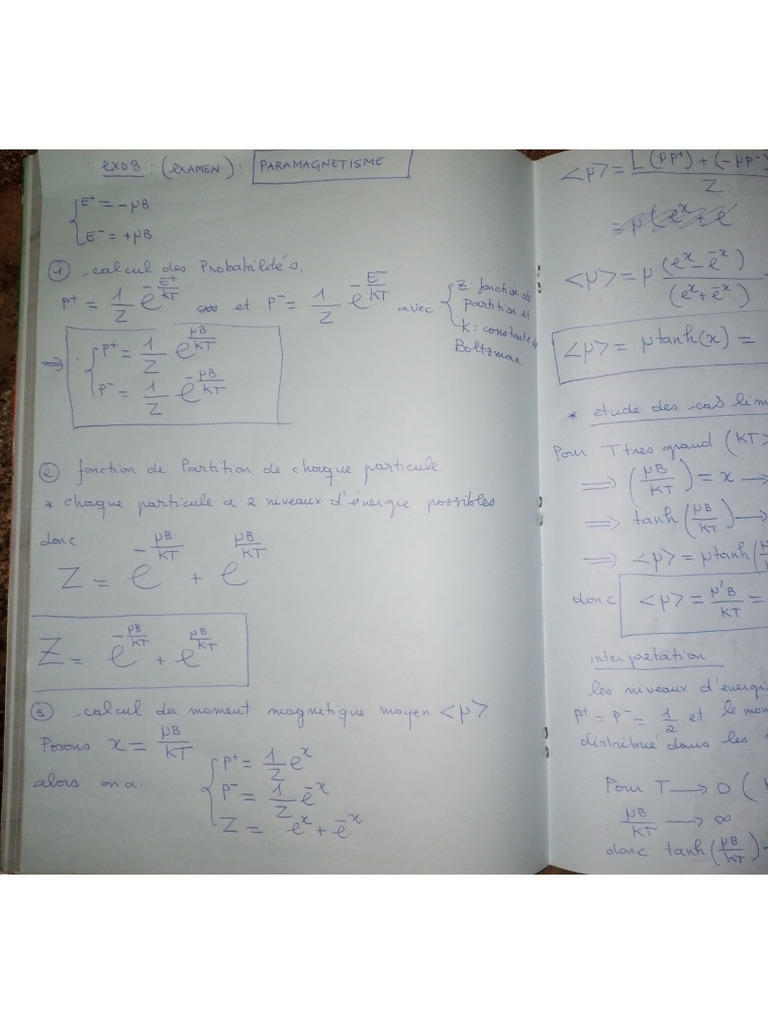 exo3 : (EXAMEN) : PARAMAGNETISME
{ E⁺ = -μB
E⁻ = +μB
① calcul des Probabilités.
P⁺ = 1/Z e^(-E⁺/KT) et P⁻ = 1/Z e^(-E⁻/KT) avec { Z : fonction de partition et K : constante de Boltzman.
⇒ { P⁺ = 1/Z e^(μB/KT)
P⁻ = 1/Z e^(-μB/KT)
② fonction de Partition de chaque particule
* chaque particule a 2 niveaux d'énergie possibles
donc
Z = e^(-μB/KT) + e^(μB/KT)
Z = e^(-μB/KT) + e^(μB/KT)
③ calcul du moment magnetique moyen <μ>.
Posons x = μB/KT
alors on a { P⁺ = 1/Z e^x
P⁻ = 1/Z e^-x
Z = e^x + e^-x
<μ> = (μP⁺) + (-μP⁻) / Z
<μ> = μ (e^x - e^-x) / (e^x + e^-x)
<μ> = μ tanh(x) =
* etude des cas lim
Pour T tres grand (KT >
⇒ (μB/KT) = x →
⇒ tanh (μB/KT) →
⇒ <μ> = μ tanh (μ
donc <μ> = μ²B/KT =
interpretation
les niveaux d'énergi
P⁺ = P⁻ = 1/2 et le mom
distribué dans les
Pour T → 0 (
μB/KT → ∞
donc tanh (μB/KT)